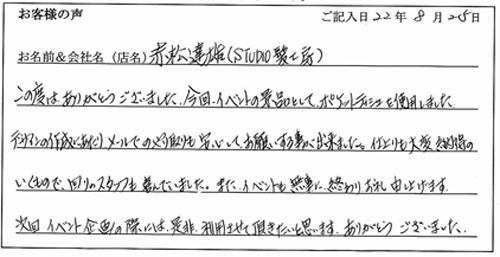 お客様の声 ご記入日 22年 8月 25日
お名前&会社名(店名) 赤松達雄(STUDIO駿工房)
この度はありがとうございました。今回、イベントの景品として、ポケットティッシュを使用しました。
デザインの作成にあたりメールでのやり取りも安心してお願いする事が出来ました。仕上りも大変納得の
いくもので、回りのスタッフも喜んでいました。また、イベントも無事に終わりお礼申し上げます。
次回イベント企画の際には、是非、利用させて頂きたいと思います。ありがとうございました。